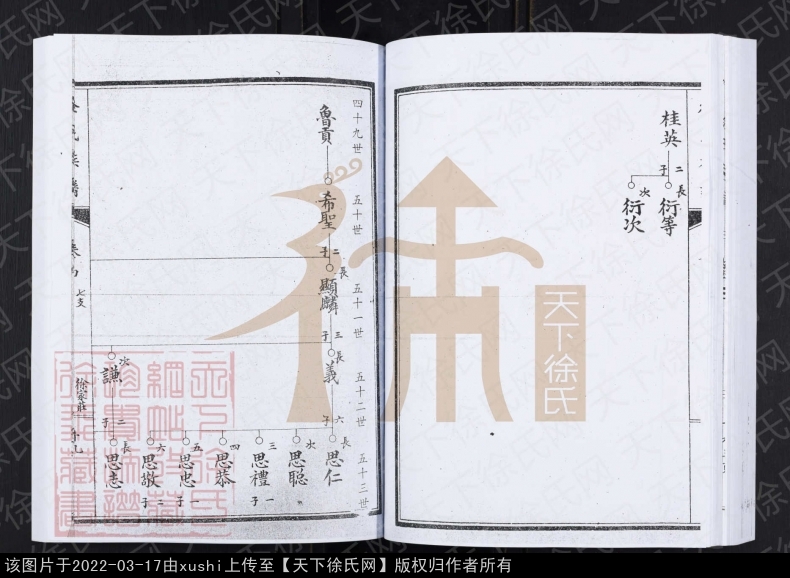 桂英
二子
長
衍等
次
衍次
四十九世
五十世
五十一世
五十二世
五十三世
魯貢
希聖
二子
長
顯麟
三子
長
義
六子
長
思仁
次
思聰
三
思禮
一子
四
思恭
五
思忠
一子
六
思敬
二子
次
謙
二子
長
思志
七支
徐家莊
天下徐氏
天下徐氏网
该图片于2022-03-17由xushi上传至【天下徐氏网】版权归作者所有